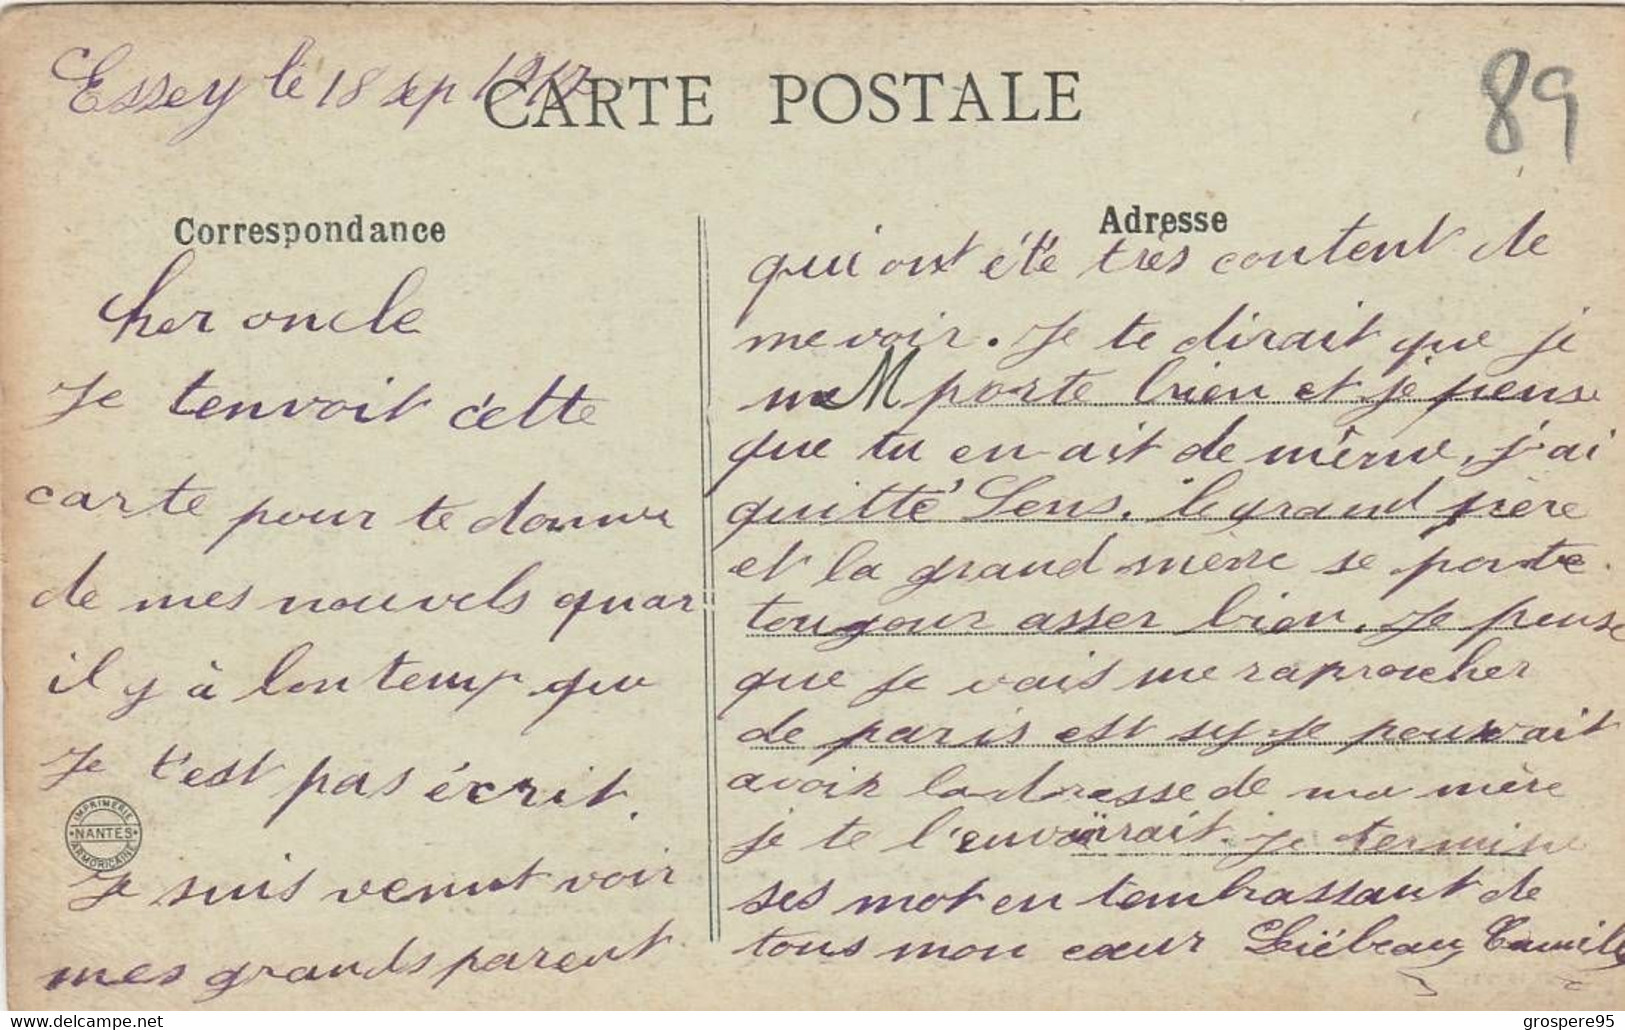 Essey le 18 sep 1917
CARTE POSTALE
89
Correspondance
Cher oncle
Je tenvoit cette
carte pour te donner
de mes nouvels quar
il y à lontemp que
Je t'est pas écrit.
Je suis venut voir
mes grands parent
IMPRIMERIE
NANTES
ARMORICAINE
Adresse
qui ont été très content de
me voir. Je te dirait que je
me porte bien et je pense
que tu en ait de même, j'ai
quitté Sens. le grand père
et la grand mère se porte
toujour asser bien. Je pense
que je vais me raproucher
de paris est sy je pouvait
avoir ladresse de ma mère
je te l'envoirait. Je termine
ses mot en tembrassant de
tous mon cœur Liébeau Camille
grospere95